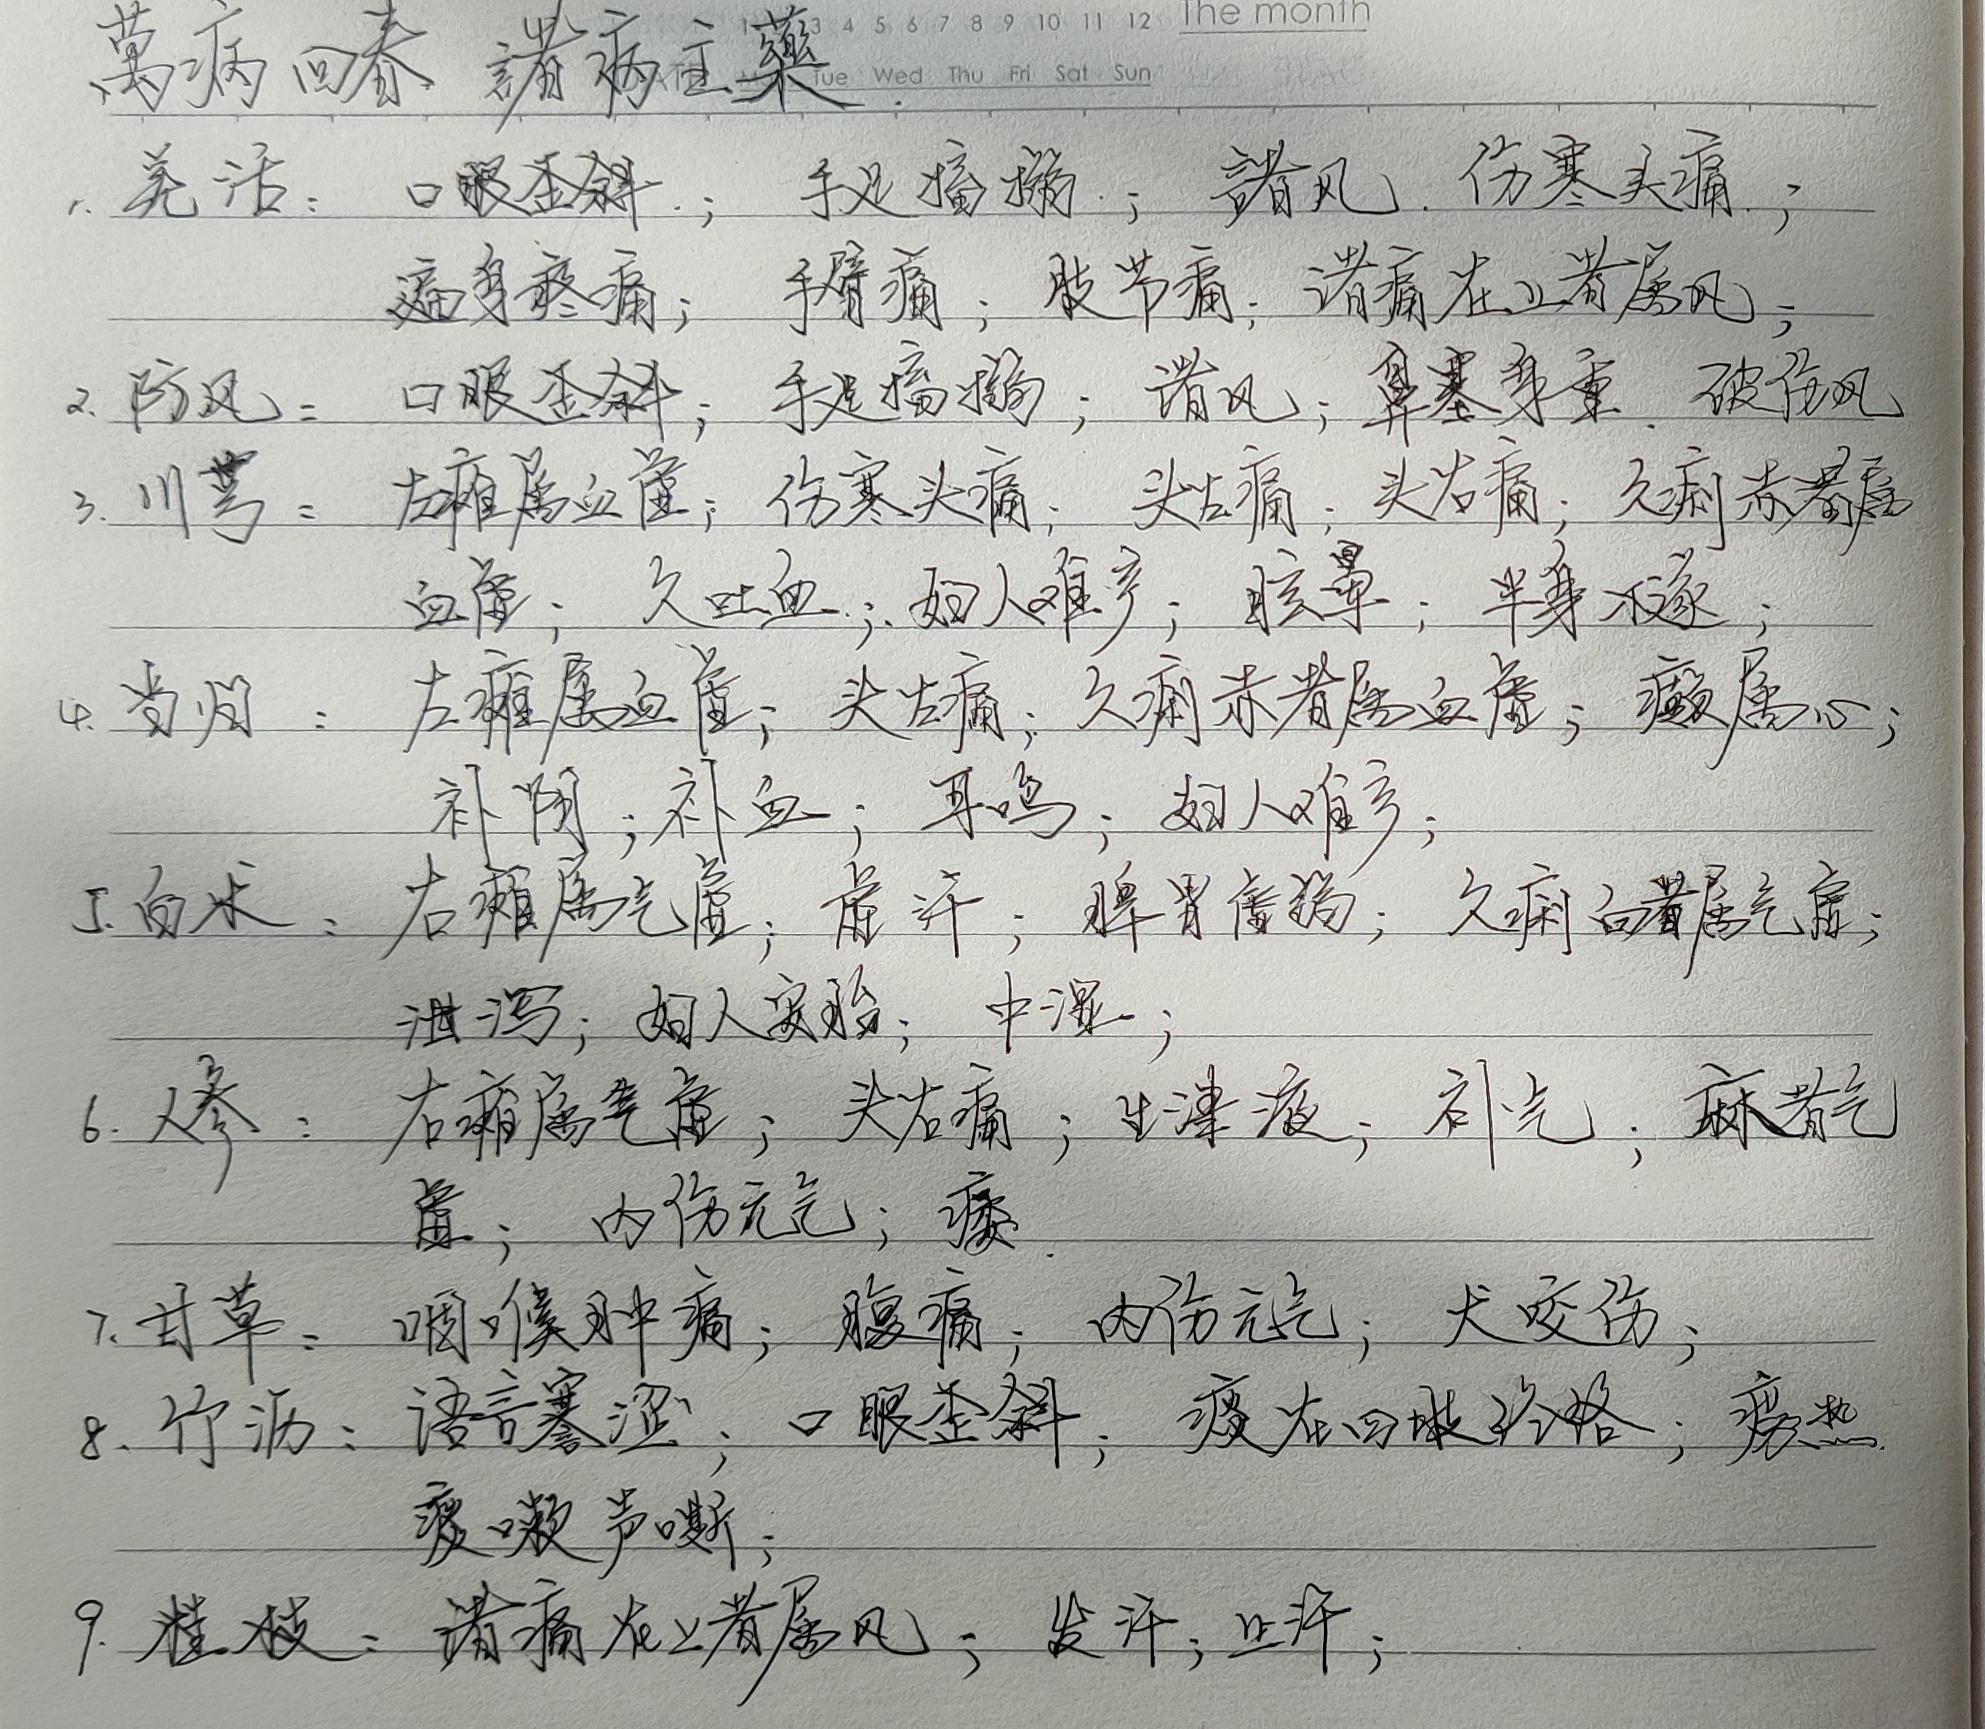 The month
3 4 5 6 7 8 9 10 11 12
Tue Wed Thu Fri Sat Sun
萬病回春 諸病主藥
1. 羌活：口眼歪斜；手足搐搦；諸风．伤寒头痛；
遍身疼痛；手臂痛；肢节痛；诸痛在上者属风；
2. 防风：口眼歪斜；手足搐搦；诸风；鼻塞身重．破伤风
3. 川芎：左瘫属血虚；伤寒头痛；头左痛；头右痛；久痢赤者属
血虚；久吐血；妇人难产；眩晕；半身不遂；
4. 当归：左瘫属血虚；头左痛；久痢赤者属血虚；癫属心；
补阴；补血；耳鸣；妇人难产；
5. 白术：右瘫属气虚；虚汗；脾胃虚弱；久痢白者属气虚；
泄泻；妇人安胎；中湿；
6. 人参：右瘫属气虚；头右痛；生津液；补气；麻者气
虚；内伤元气；痿．
7. 甘草：咽喉肿痛；腹痛；内伤元气；犬咬伤；
8. 竹沥：语言蹇涩；口眼歪斜；痰在四肢经络；痨热
痰嗽声嘶；
9. 桂枝：诸痛在上者属风；发汗；止汗；